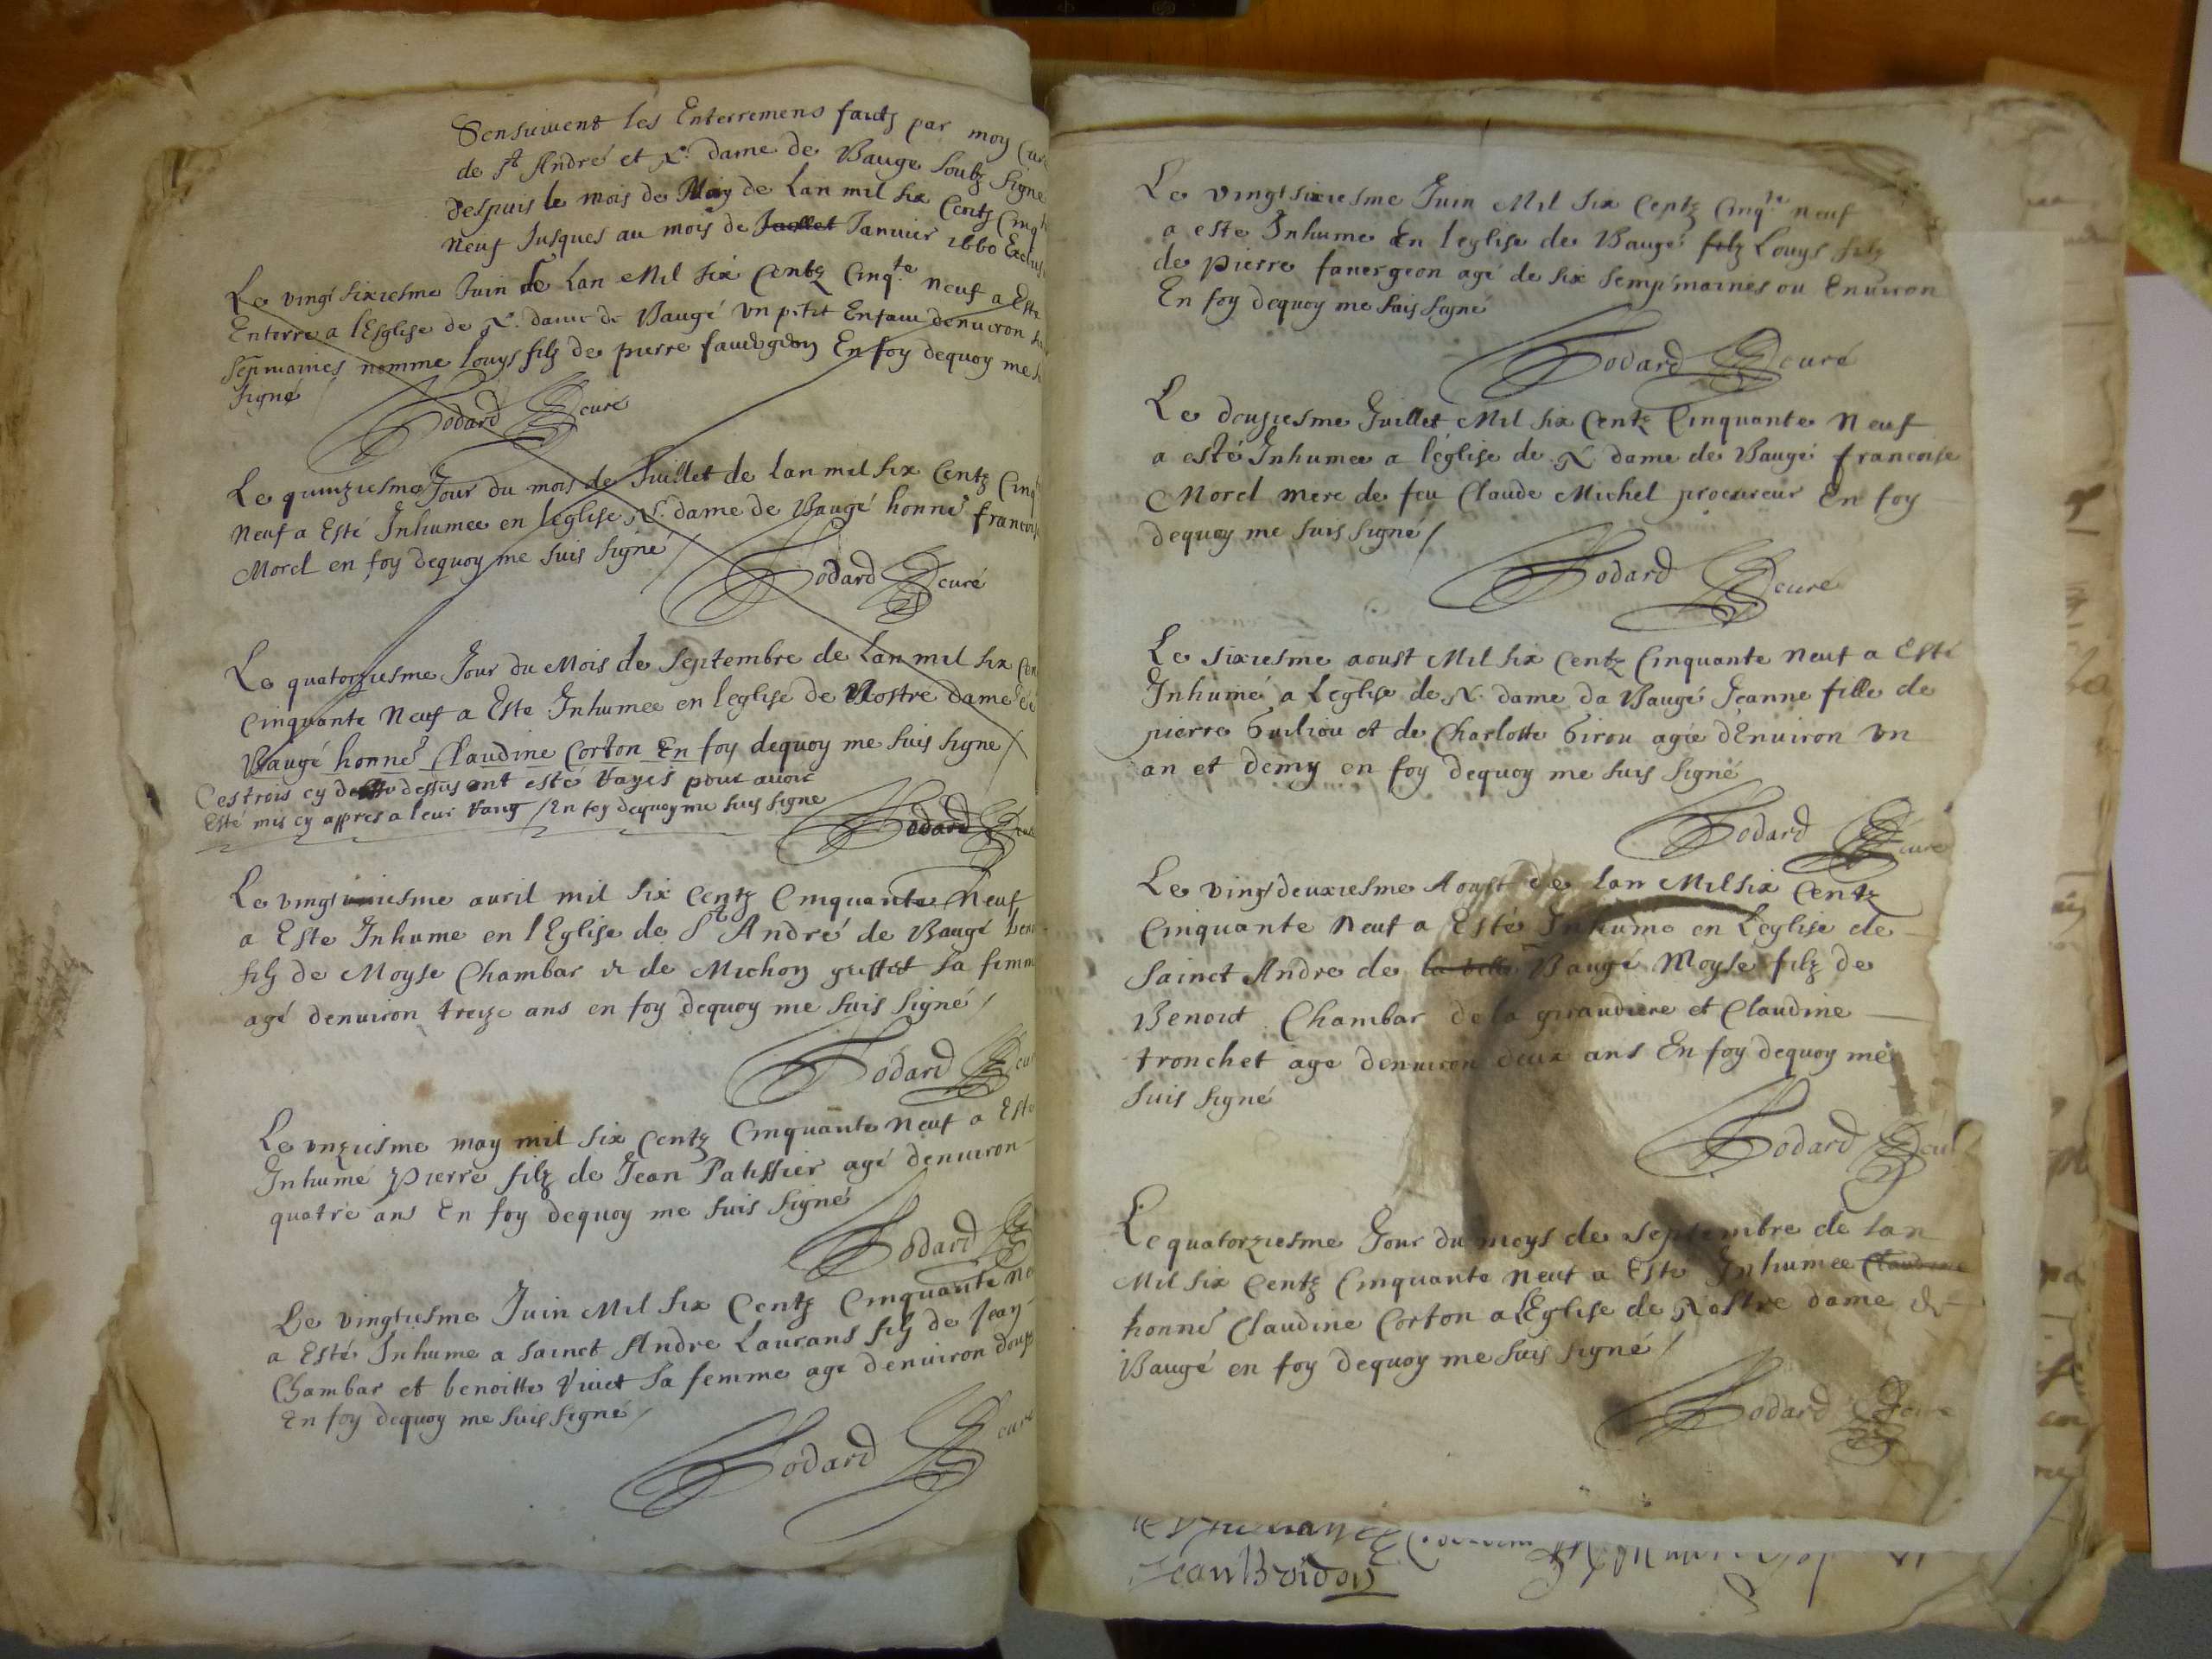 Sensuivent les Enterremens faictz par moy Curé
de St André et N. dame de Baugé soubz signé
despuis le mois de May de Lan mil six Centz Cinqte
neuf Jusques au mois de Juillet Januier 1660 Exclus
Le vingt sixiesme Juin de Lan Mil six Centz Cinqte neuf a Esté
Enterré a l'Esglise de N. dame de Baugé vn petit Enfant denuiron
sepmaines nomme Louys filz de pierre En foy dequoy me
signé
Godard curé
Le quinziesme Jour du mois de Juillet de Lan mil six Centz Cinq
neuf a Esté Inhumee en leglise N. dame de Baugé honne francoise
Morel en foy dequoy me suis signé /
Godard curé
Le quatorziesme Jour du Mois de Septembre de Lan mil six Cen
Cinquante Neuf a Este Inhumee en leglise de Nostre dame de
Baugé honne Claudine Corton En foy dequoy me suis signe /
Ces trois cy dessus ont esté Rayés pour auoir
Esté mis cy appres a leur Rang / En foy dequoy me suis signe
Godard curé
Le vingt auril mil six Centz Cinquante Neuf
a Este Inhume en l'Eglise de St André de Baugé
filz de Moyse Chambar & de Michon sa femme
agé denuiron treize ans en foy dequoy me suis signé /
Godard curé
Le vnziesme may mil six Centz Cinquante neuf a Esté
Inhumé Pierre filz de Jean Patissier agé denuiron
quatre ans En foy dequoy me suis signé
Godard
Le vingtiesme Juin Mil six Centz Cinquante neuf
a Esté Inhume a sainct Andre Laurans filz de Jean
Chambar et benoitte Viuet sa femme age denuiron
En foy dequoy me suis signé /
Godard curé
Le vingt sixiesme Juin Mil six Centz Cinqte neuf
a este Inhume En l'eglise de Baugé filz Louys filz
de Pierre fauergeon agé de six semp'maines ou Enuiron
En foy dequoy me suis signé
Godard curé
Le dousiesme Juillet Mil six Centz Cinquante Neuf
a esté Inhumee a l'église de N. dame de Baugé francoise
Morel mere de feu Claude Michel procureur En foy
dequoy me suis signé /
Godard curé
Le sixiesme aoust Mil six Centz Cinquante neuf a Esté
Inhumé a Leglise de N. dame da Baugé Jeanne fille de
pierre et de Charlotte agée dEnuiron vn
an et demy en foy dequoy me suis signé
Godard curé
Le vingt deuxiesme Aoust de lan Mil six Centz
Cinquante Neuf a Esté Inhumé en L'eglise de
Sainct Andre de la ville Baugé Moyse filz de
Benoict Chambar de la giraudiere et Claudine
tronchet age denuiron deux ans En foy dequoy me
suis signé
Godard curé
Le quatorziesme Jour du moys de Septembre de Lan
Mil six Centz Cinquante neuf a Este Inhumee Claudine
honne Claudine Corton a L'Eglise de Nostre dame de
Baugé en foy dequoy me suis signé /
Godard curé
Jean Boidon